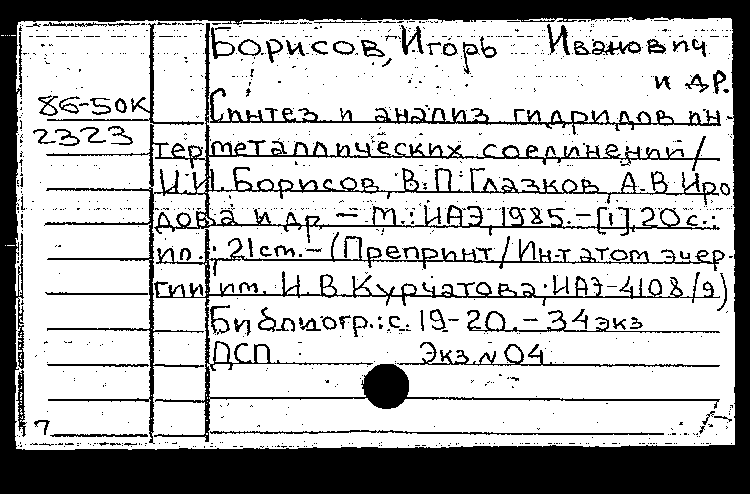 Борисов, Игорь Иванович
и др.
86-50К
2323
Синтез и анализ гидридов ин-
терметаллических соединений/
И.И. Борисов, В.П. Глазков, А.В. Иро
дова и др. – М.: ИАЭ, 1985. – [1], 20 с.:
ил.; 21 cm. – (Препринт / Ин-т атом энер-
гии им. И.В. Курчатова; ИАЭ-4108/9)
Библиогр.: с. 19-20. – 34 экз
ДСП. Экз. N 04.
7